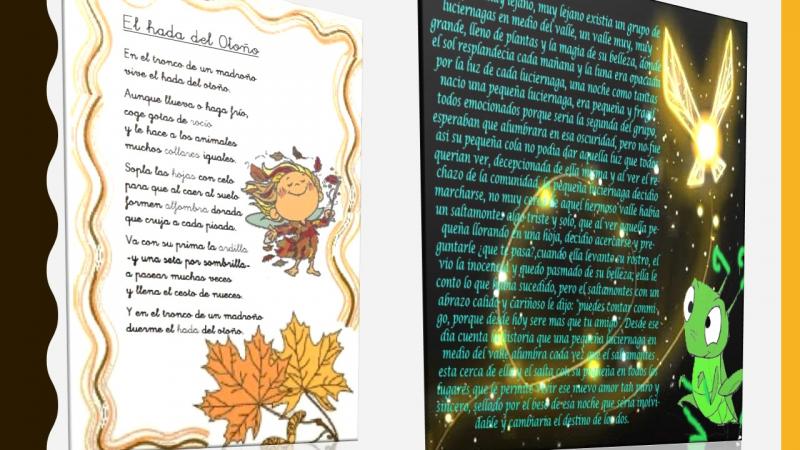 El hada del Otoño
En el tronco de un madroño
vive el hada del otoño.
Aunque llueva o haga frío,
coge gotas de rocío
y le hace a los animales
muchos collares iguales.
Sopla las hojas con celo
para que al caer al suelo
formen alfombra dorada
que cruja a cada pisada.
Va con su prima la ardilla
-y una seta por sombrilla-
a pasear muchas veces
y llena el cesto de nueces.
Y en el tronco de un madroño
duerme el hada del otoño.
muy lejano, muy lejano existia un grupo de
luciernagas en medio del valle, un valle muy, muy
grande, lleno de plantas y la magia de su belleza, donde
el sol resplandecia cada mañana y la luna era opacada
por la luz de cada luciernaga, una noche como tantas
nacio una pequeña luciernaga, era pequeña y fragil,
todos emocionados porque seria la segunda del grupo,
esperaban que alumbrara en esa oscuridad, pero no fue
asi su pequeña cola no podia dar aquella luz que todos
querian ver, decepcionada de ella misma y al ver el re-
chazo de la comunidad, la pequeña luciernaga decidio
marcharse, no muy cerca de aquel hermoso valle habia
un saltamontes algo triste y solo, que al ver aquella pe-
queña llorando en una hoja, decidio acercarse y pre-
guntarle ¿que te pasa?,cuando ella levanto su rostro, el
vio la inocencia y quedo pasmado de su belleza; ella le
conto lo que habia sucedido, pero el saltamontes con un
abrazo calido y cariñoso le dijo: "puedes contar conmi
go, porque desde hoy sere mas que tu amigo". Desde ese
dia cuenta la historia que una pequeña luciernaga en
medio del valle alumbra cada vez que el saltamontes
esta cerca de ella y el salta con su pequeña en todos los
lugares que le permite vivir ese nuevo amor tan puro y
sincero, sellado por el beso de esa noche que seria inolvi-
dable y cambiaria el destino de los dos.